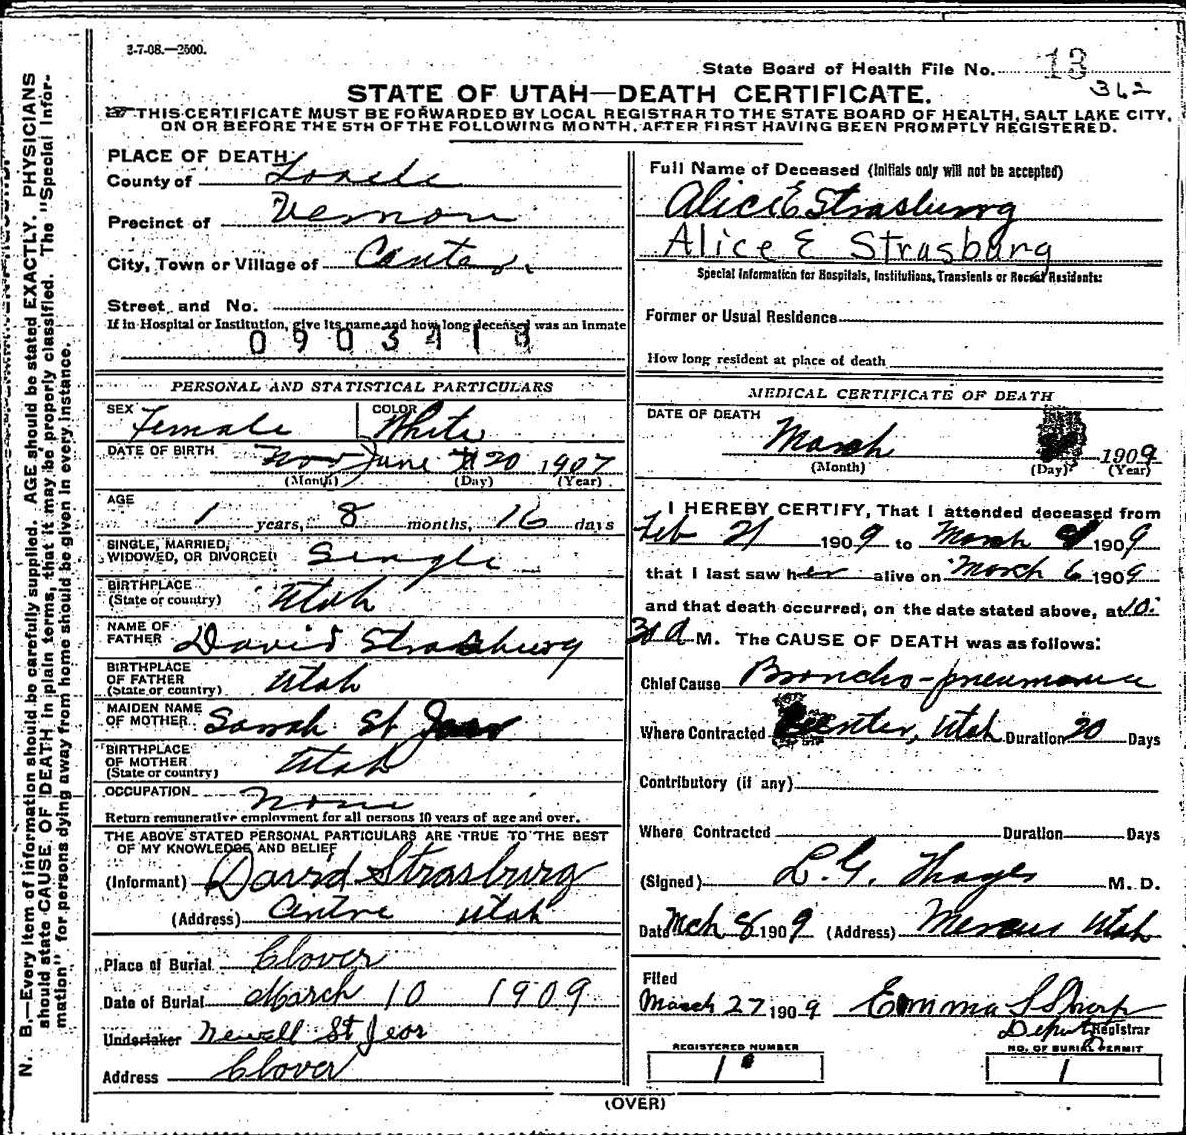 3-7-08.—2500.
State Board of Health File No. 13
362
STATE OF UTAH—DEATH CERTIFICATE.
THIS CERTIFICATE MUST BE FORWARDED BY LOCAL REGISTRAR TO THE STATE BOARD OF HEALTH, SALT LAKE CITY,
ON OR BEFORE THE 5TH OF THE FOLLOWING MONTH, AFTER FIRST HAVING BEEN PROMPTLY REGISTERED.
N. B.—Every item of information should be carefully supplied. AGE should be stated EXACTLY. PHYSICIANS
should state CAUSE OF DEATH in plain terms, that it may be properly classified. The "Special Infor-
mation" for persons dying away from home should be given in every instance.
PLACE OF DEATH
County of Tooele
Precinct of Vernon
City, Town or Village of Center
Street and No.
If in Hospital or Institution, give its name and how long deceased was an inmate
PERSONAL AND STATISTICAL PARTICULARS
SEX Female COLOR White
DATE OF BIRTH Nov June 20 1907
(Month) (Day) (Year)
AGE
1 years, 8 months, 16 days
SINGLE, MARRIED,
WIDOWED, OR DIVORCED Single
BIRTHPLACE
(State or country) Utah
NAME OF
FATHER David Strasburg
BIRTHPLACE
OF FATHER
(State or country) Utah
MAIDEN NAME
OF MOTHER Sarah St Jeor
BIRTHPLACE
OF MOTHER
(State or country) Utah
OCCUPATION None
Return remunerative employment for all persons 10 years of age and over.
THE ABOVE STATED PERSONAL PARTICULARS ARE TRUE TO THE BEST
OF MY KNOWLEDGE AND BELIEF
(Informant) David Strasburg
(Address) Centre Utah
Place of Burial Clover
Date of Burial March 10 1909
Undertaker Newell St Jeor
Address Clover
Full Name of Deceased (Initials only will not be accepted)
Alice E Strasburg
Alice E Strasburg
Special Information for Hospitals, Institutions, Transients or Recent Residents:
Former or Usual Residence
How long resident at place of death
MEDICAL CERTIFICATE OF DEATH
DATE OF DEATH
March 1909
(Month) (Day) (Year)
I HEREBY CERTIFY, That I attended deceased from
Feb 21 1909 to March 1909
that I last saw her alive on March 6 1909
and that death occurred, on the date stated above, at 10:
30 A M. The CAUSE OF DEATH was as follows:
Chief Cause Broncho-pneumonia
Where Contracted Center, Utah Duration 20 Days
Contributory (if any)
Where Contracted Duration Days
(Signed) L. G. Thayer M. D.
Date Mch 8 1909 (Address) Mercur Utah
Filed
March 27 1909 Emma S Sharp
Deputy Registrar
REGISTERED NUMBER
1
NO. OF BURIAL PERMIT
1
(OVER)